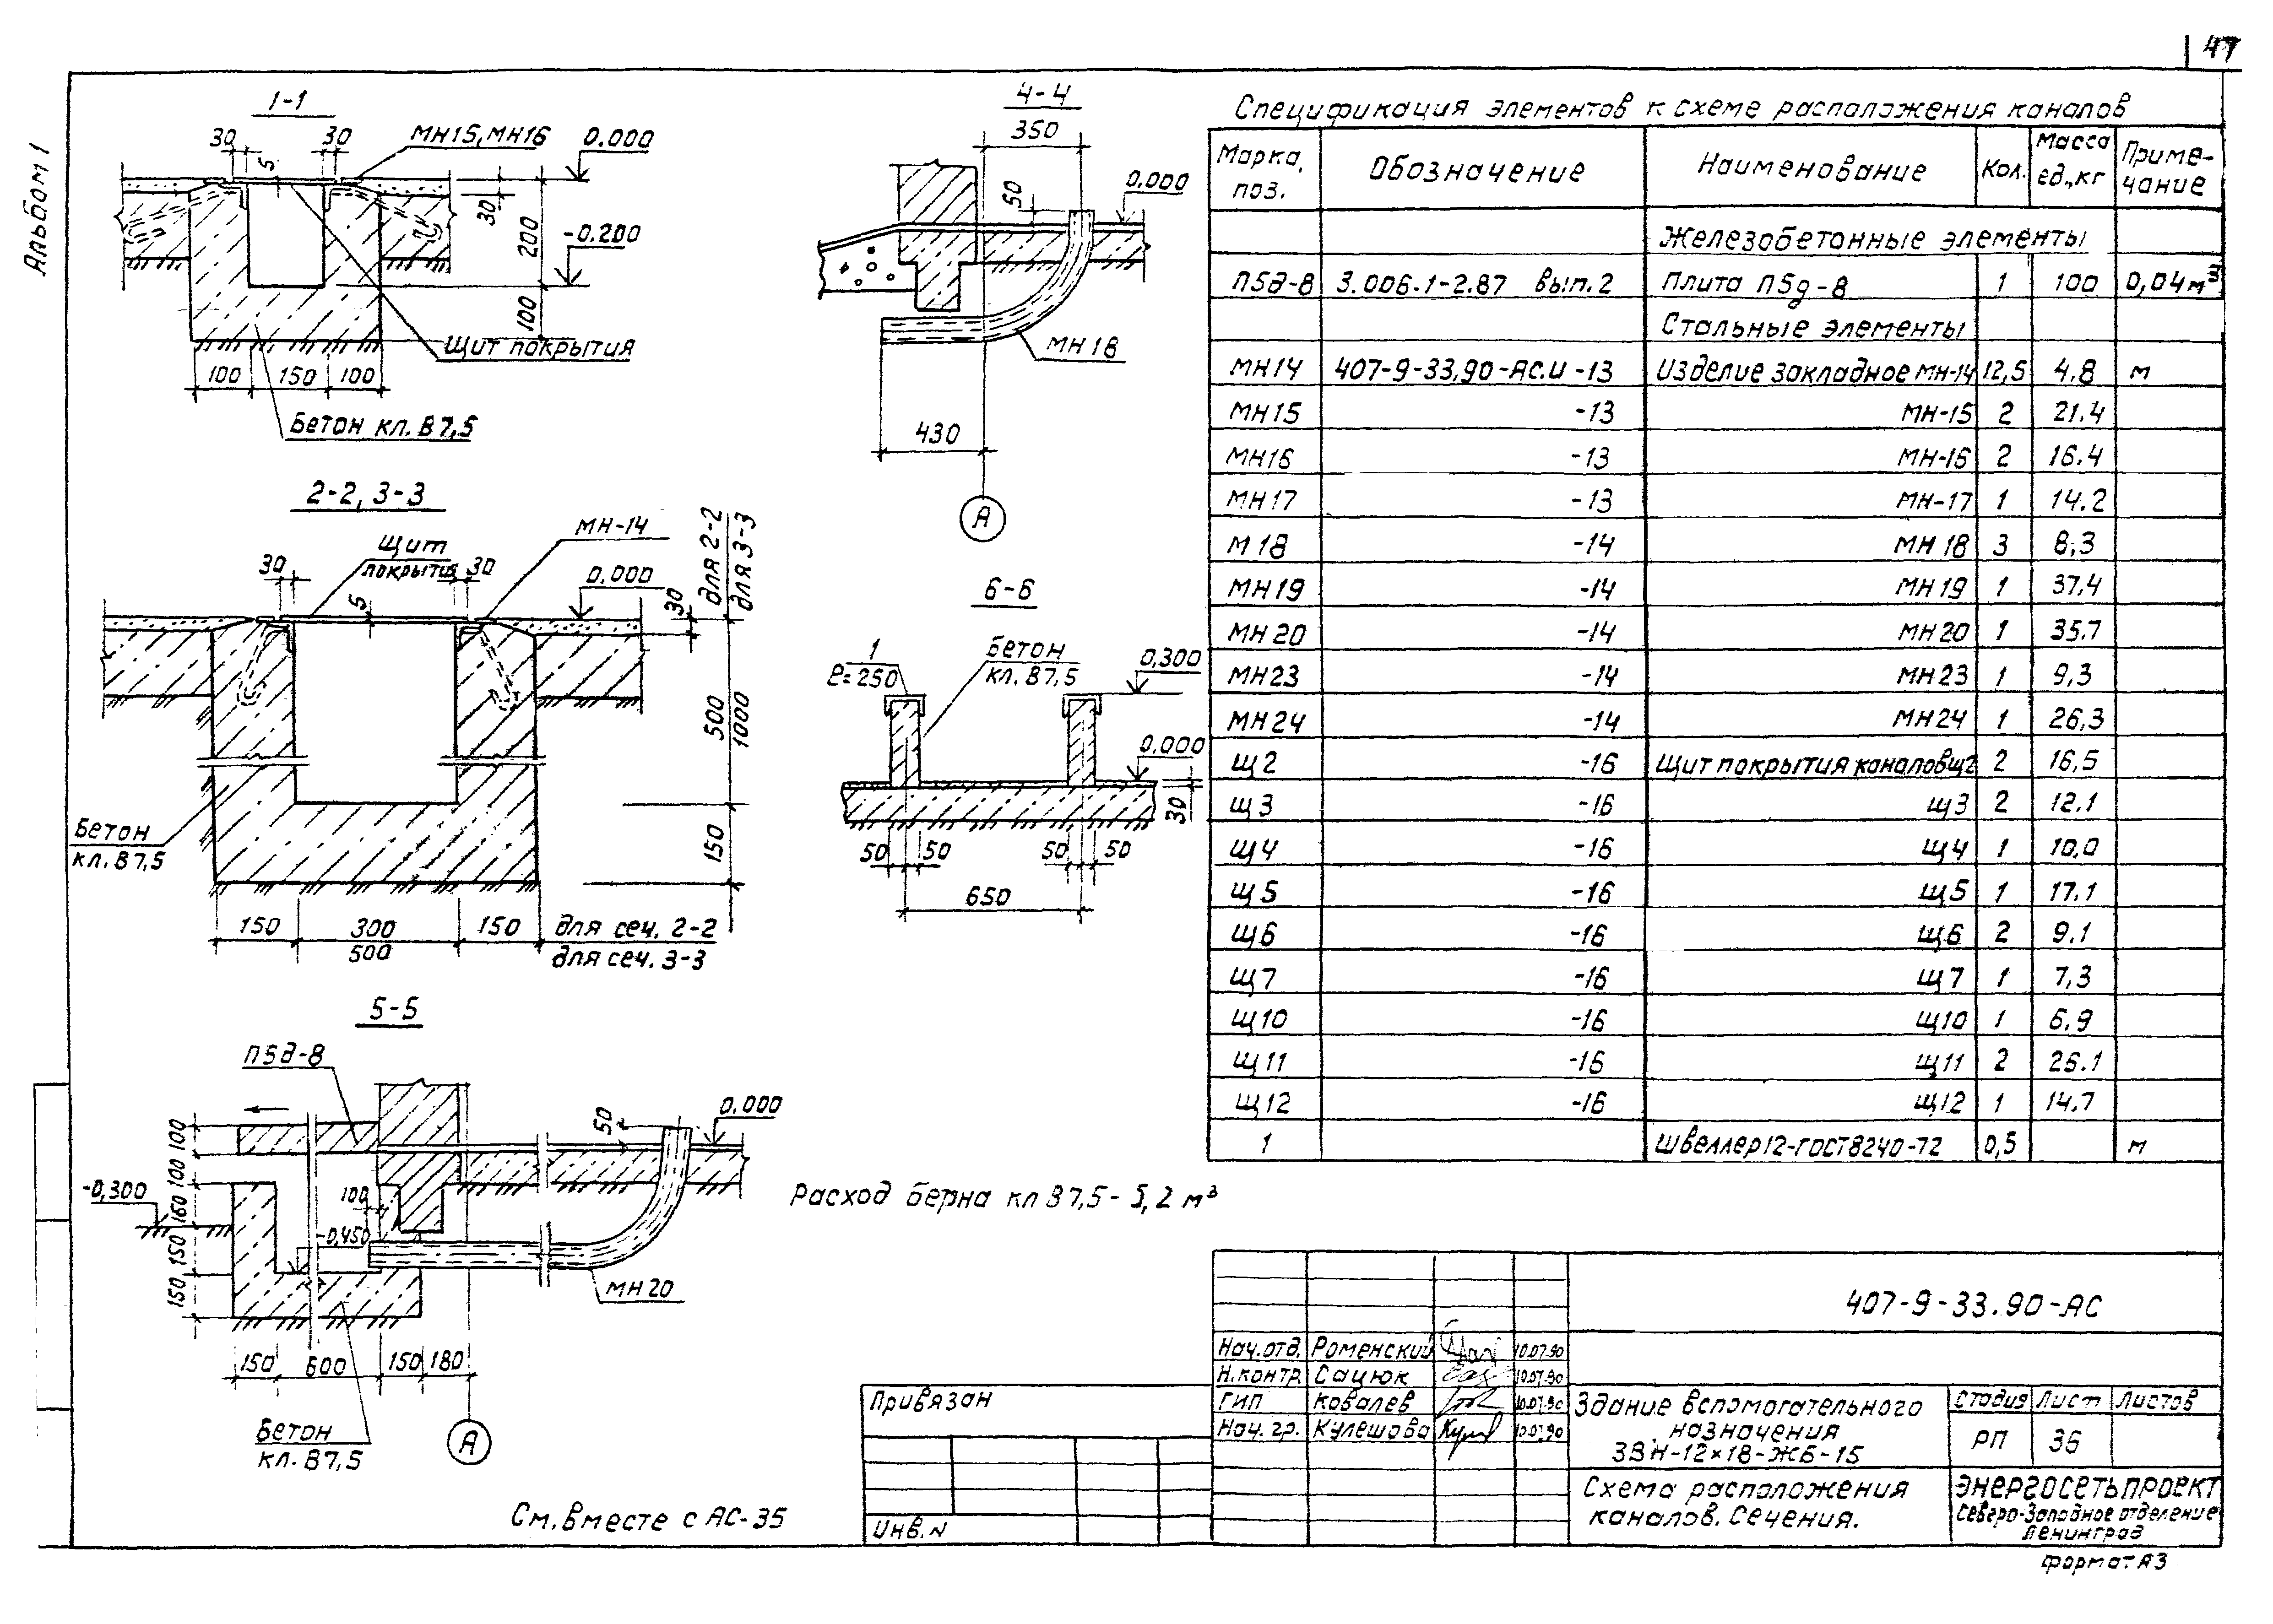 47
Альбом 1
1-1
30
30
5
МН15, МН16
0.000
30
200
-0.200
100
Щит покрытия
100
150
100
Бетон кл. В7,5
2-2, 3-3
МН-14
Щит
покрытия
30
30
5
0.000
для 2-2
для 3-3
30
500
1000
150
Бетон
кл. В7,5
150
300
500
150
для сеч. 2-2
для сеч. 3-3
5-5
П5д-8
0.000
50
100
100
160
150
150
-0,300
100
-0,450
МН20
150
600
150
180
Бетон
кл. В7,5
А
4-4
350
50
0.000
МН18
430
А
6-6
1
ℓ=250
Бетон
кл. В7,5
0,300
0.000
30
50
50
50
50
650
Спецификация элементов к схеме расположения каналов
Марка, поз. Обозначение Наименование Кол. Масса ед., кг Примечание
Железобетонные элементы
П5д-8 3.006.1-2.87 вып. 2 Плита П5д-8 1 100 0,04м³
Стальные элементы
МН14 407-9-33.90-АС.И -13 Изделие закладное МН-14 12,5 4.8 м
МН15 -13 МН-15 2 21.4
МН16 -13 МН-16 2 16.4
МН17 -13 МН-17 1 14.2
М18 -14 МН18 3 8,3
МН19 -14 МН19 1 37,4
МН20 -14 МН20 1 35.7
МН23 -14 МН23 1 9,3
МН24 -14 МН24 1 26,3
Щ2 -16 Щит покрытия каналов Щ2 2 16,5
Щ3 -16 Щ3 2 12.1
Щ4 -16 Щ4 1 10,0
Щ5 -16 Щ5 1 17.1
Щ6 -16 Щ6 2 9.1
Щ7 -16 Щ7 1 7,3
Щ10 -16 Щ10 1 6.9
Щ11 -16 Щ11 2 26.1
Щ12 -16 Щ12 1 14.7
1 Швеллер 12-ГОСТ 8240-72 0,5 м
Расход бетона кл В7,5 - 5,2 м³
См. вместе с АС-35
Привязан
Инв. N
407-9-33.90-АС
Нач. отд. Роменский 10.07.90
Н. контр. Сацюк 10.07.90
ГИП Ковалев 10.07.90
Нач. гр. Кулешова 10.07.90
Здание вспомогательного
назначения
ЗВН-12×18-ЖБ-15
Стадия Лист Листов
РП 36
Схема расположения
каналов. Сечения.
ЭНЕРГОСЕТЬПРОЕКТ
Северо-Западное отделение
Ленинград
Формат А3